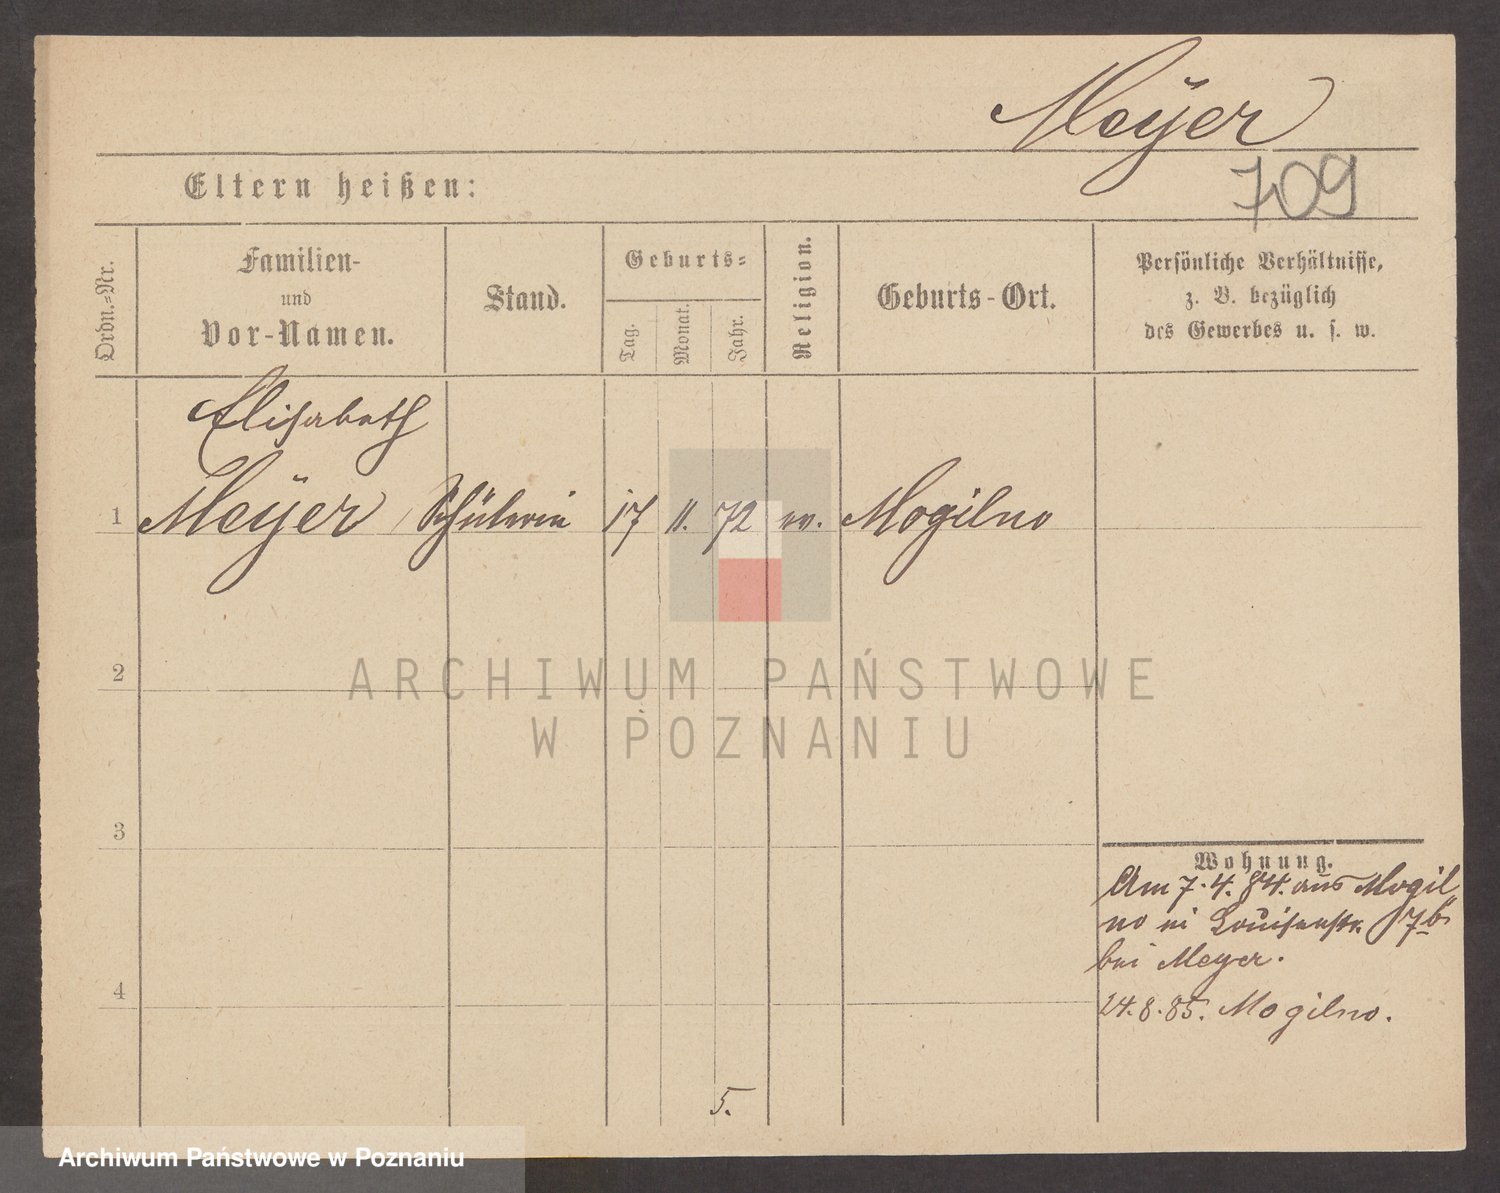 Meÿer
709
Eltern heißen:
Ordn.=Nr.
Familien-
und
Vor-Namen.
Stand.
Geburts=
Tag.
Monat.
Jahr.
Religion.
Geburts-Ort.
Persönliche Verhältnisse,
z. B. bezüglich
des Gewerbes u. s. w.
Elisabeth
1 Meÿer Schülerin 17 11. 72 ev. Mogilno
2
ARCHIWUM PAŃSTWOWE
W POZNANIU
3
Wohnung.
Am 7.4.84. aus Mogil
no in Louisenstr. 7b
bei Meyer.
4
24.8.85. Mogilno.
5.
Archiwum Państwowe w Poznaniu